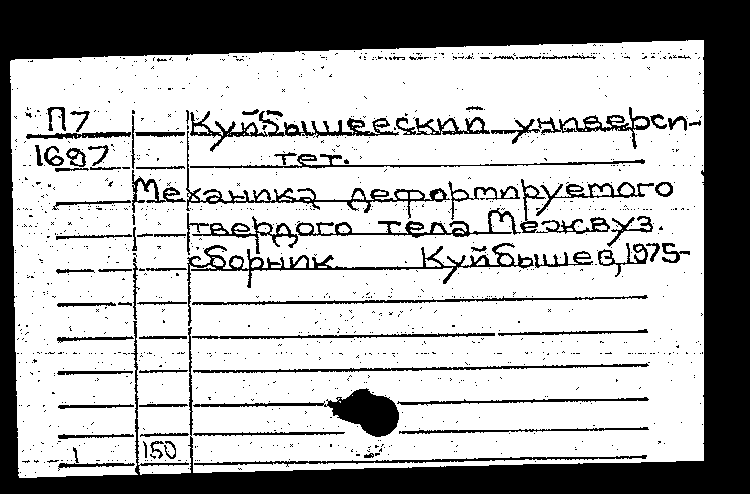 П7 Куйбышевский универси-
1687 тет.
Механика деформируемого
твердого тела. Межвуз.
сборник Куйбышев, 1975-
1 150